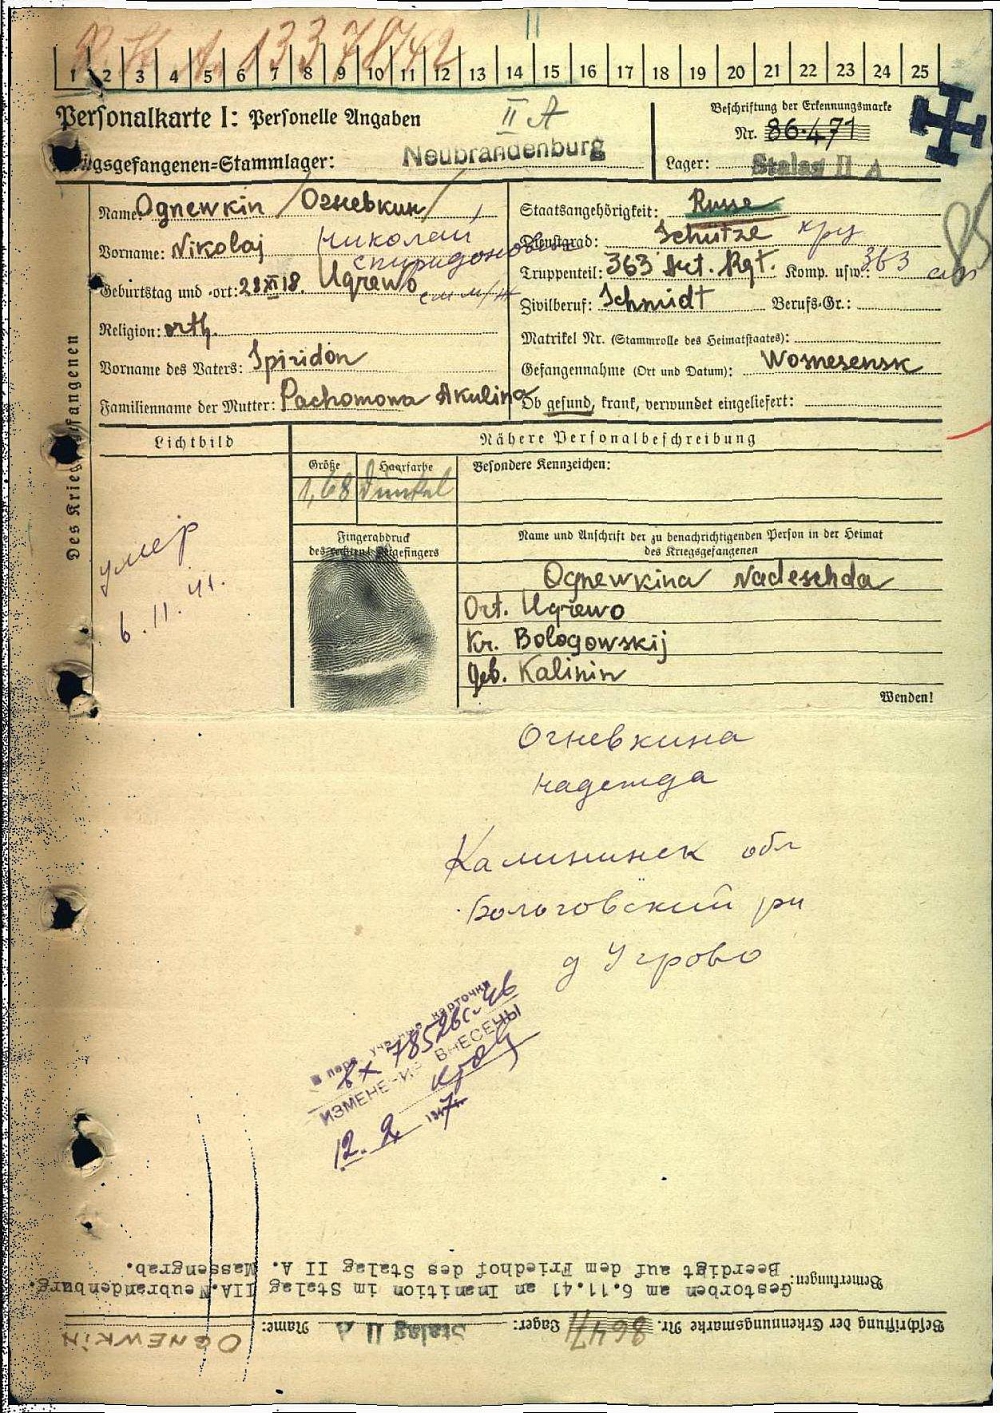 R.K.A. 1337842
1 2 3 4 5 6 7 8 9 10 11 12 13 14 15 16 17 18 19 20 21 22 23 24 25
Personalkarte I: Personelle Angaben
II A
Beschriftung der Erkennungsmarke
Nr. 86471
Kriegsgefangenen=Stammlager: Neubrandenburg
Lager: Stalag II A
Name: Ognewkin /Огневкин/
Staatsangehörigkeit: Russe
Vorname: Nikolaj Николай
Спиридонович
Dienstgrad: Schütze кр
Geburtstag und =ort: 28 XI 18. Ugrewo
Truppenteil: 363 Art. Rgt. Komp. usw.: 363
Zivilberuf: Schmidt Berufs=Gr.:
Religion: orth.
Matrikel Nr. (Stammrolle des Heimatstaates):
Vorname des Vaters: Spiridon
Gefangennahme (Ort und Datum): Wosnesensk
Familienname der Mutter: Pachomowa Akulina
Ob gesund, krank, verwundet eingeliefert:
Des Kriegsgefangenen
Lichtbild
Nähere Personalbeschreibung
Größe Haarfarbe Besondere Kennzeichen:
1,68 dunkel
умер
6.11.41.
Fingerabdruck
des rechten Zeigefingers
Name und Anschrift der zu benachrichtigenden Person in der Heimat
des Kriegsgefangenen
Ognewkina Nadeschda
Ort. Ugrewo
Kr. Bologowskij
Geb. Kalinin
Wenden!
Огневкина
Надежда
Калининск обл
Бологовский рн
д Угрово
в перс. учетные карточки
ИЗМЕНЕНИЕ ВНЕСЕНЫ
Bemerkungen:
Gestorben am 6.11.41 an Inanition im Stalag IIA.Neubrandenburg.
Beerdigt auf dem Friedhof des Stalag II A. Massengrab.
Beschriftung der Erkennungsmarke Nr. 86471 Lager: Stalag II A Name: OGNEWKIN